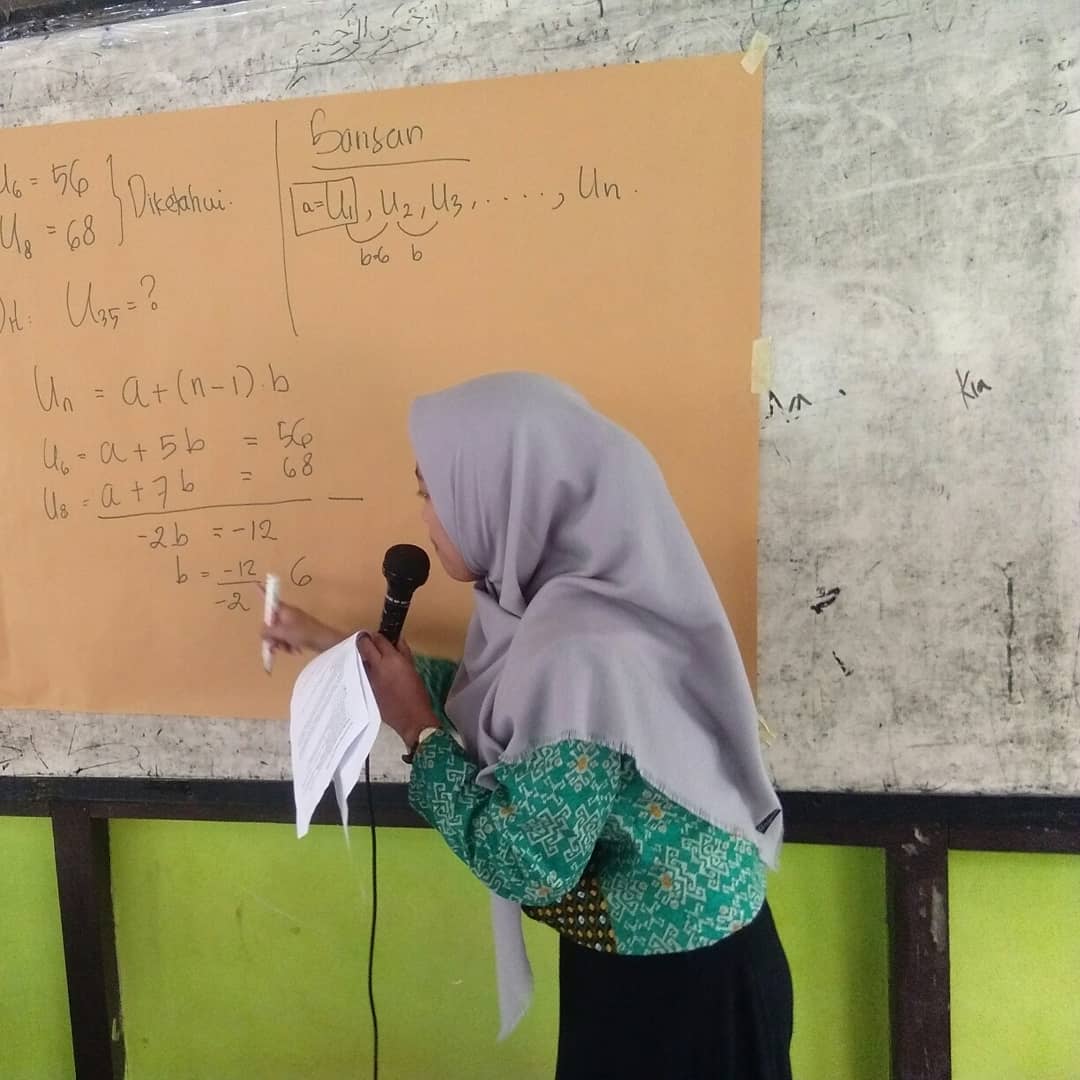 U6 = 56
U8 = 68 } Diketahui.
Dit: U35 = ?
Un = a + (n-1).b
U6 = a + 5b = 56
U8 = a + 7b = 68 _
-2b = -12
b = -12/-2 6
Barisan
a=U1, U2, U3, ....., Un.
b=6 b
Kia